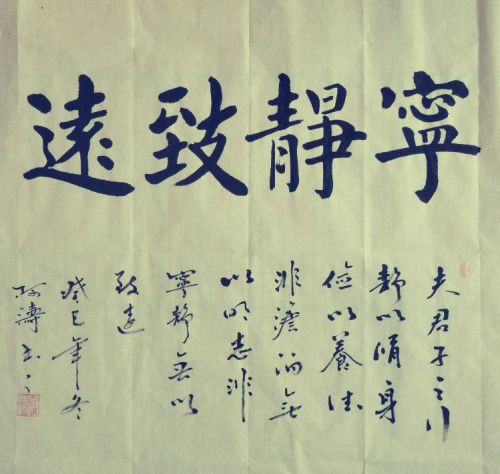 寧靜致遠
夫君子之行
靜以脩身
儉以養德
非澹泊無
以明志非
寧靜無以
致遠
癸巳年冬
濤書